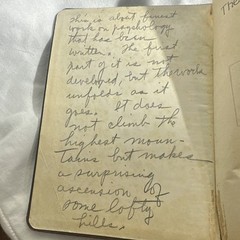 This is about finest
work on psychology
that has been
written. The first
part of it is not
developed, but the work
unfolds as it
goes. It does
not climb the
highest moun-
tains but makes
a surprising
ascension of
some lofty
hills.
The